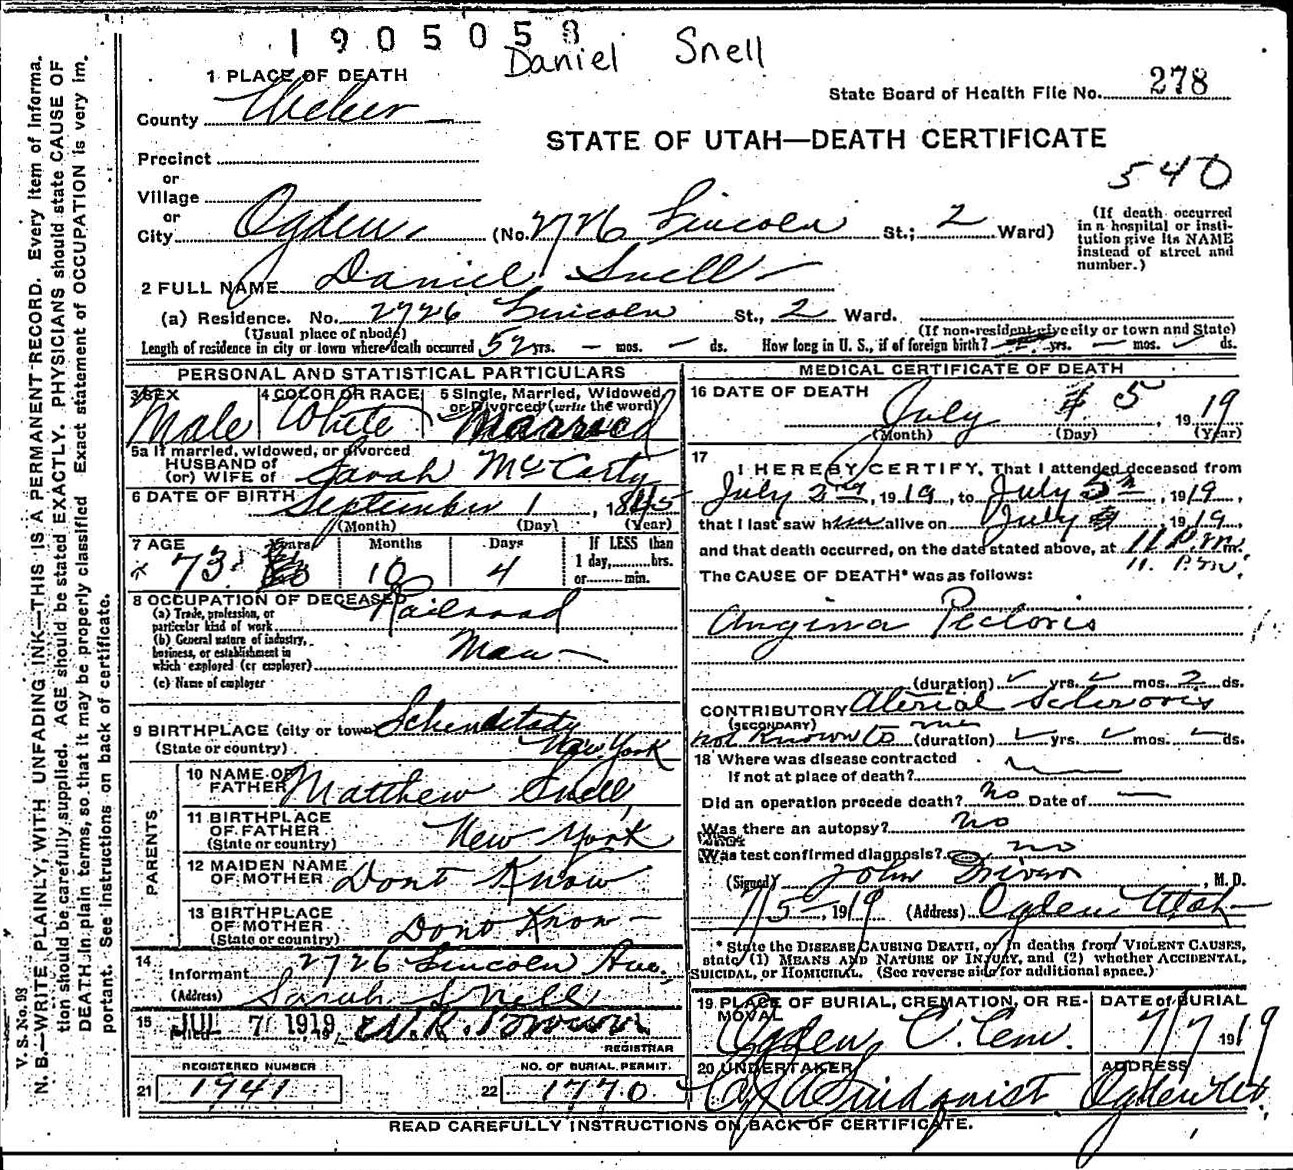 1905058
Daniel Snell
1 PLACE OF DEATH
County Weber
State Board of Health File No. 278
STATE OF UTAH—DEATH CERTIFICATE
Precinct
540
or
Village
or
City Ogden. (No. 2726 Lincoln St.; 2 Ward)
(If death occurred in a hospital or insti-
tution give its NAME
instead of street and
number.)
2 FULL NAME Daniel Snell
(a) Residence. No. 2726 Lincoln St., 2 Ward.
(Usual place of abode) (If non-resident give city or town and State)
Length of residence in city or town where death occurred 52 yrs. — mos. — ds. How long in U. S., if of foreign birth? yrs. — mos. ds.
PERSONAL AND STATISTICAL PARTICULARS
3 SEX 4 COLOR OR RACE 5 Single, Married, Widowed,
or Divorced (write the word)
Male White Married
5a If married, widowed, or divorced
HUSBAND of
(or) WIFE of Sarah McCarty
6 DATE OF BIRTH September 1, 1845
(Month) (Day) (Year)
7 AGE Years Months Days If LESS than
1 day, hrs.
or min.
73 10 4
8 OCCUPATION OF DECEASED
(a) Trade, profession, or
particular kind of work Railroad
(b) General nature of industry,
business, or establishment in
which employed (or employer) Man
(c) Name of employer
9 BIRTHPLACE (city or town)
(State or country) New York
PARENTS
10 NAME OF
FATHER Matthew Snell
11 BIRTHPLACE
OF FATHER
(State or country) New York
12 MAIDEN NAME
OF MOTHER Dont Know
13 BIRTHPLACE
OF MOTHER
(State or country) Dont Know
14
Informant 2726 Lincoln Ave.
(Address) Sarah Snell
15 Filed JUL 7 1919, 191
REGISTRAR
REGISTERED NUMBER NO. OF BURIAL PERMIT.
21 1941 22 1770
MEDICAL CERTIFICATE OF DEATH
16 DATE OF DEATH
July 5, 1919
(Month) (Day) (Year)
17
I HEREBY CERTIFY, That I attended deceased from
July 2nd, 1919, to July 5th, 1919,
that I last saw him alive on July, 1919,
and that death occurred, on the date stated above, at 11 P.m. m.
11. P.m.
The CAUSE OF DEATH* was as follows:
Angina Pectoris
(duration) yrs. mos. 2 ds.
CONTRIBUTORY Aterial Sclerosis
(SECONDARY)
not known to me (duration) yrs. mos. ds.
18 Where was disease contracted
if not at place of death?
Did an operation precede death? no Date of —
Was there an autopsy? no
Was test confirmed diagnosis? no
(Signed) John Driver, M. D.
7/5, 1919 (Address) Ogden Utah
* State the DISEASE CAUSING DEATH, or in deaths from VIOLENT CAUSES,
state (1) MEANS AND NATURE OF INJURY, and (2) whether ACCIDENTAL,
SUICIDAL, or HOMICIDAL. (See reverse side for additional space.)
19 PLACE OF BURIAL, CREMATION, OR RE-
MOVAL DATE of BURIAL
Ogden C. Cem. 7/7 1919
20 UNDERTAKER ADDRESS
Lindquist Ogden Ut.
READ CAREFULLY INSTRUCTIONS ON BACK OF CERTIFICATE.
V. S. No. 93
N. B.—WRITE PLAINLY, WITH UNFADING INK—THIS IS A PERMANENT RECORD. Every item of informa-
tion should be carefully supplied. AGE should be stated EXACTLY. PHYSICIANS should state CAUSE OF
DEATH in plain terms, so that it may be properly classified. Exact statement of OCCUPATION is very im-
portant. See instructions on back of certificate.